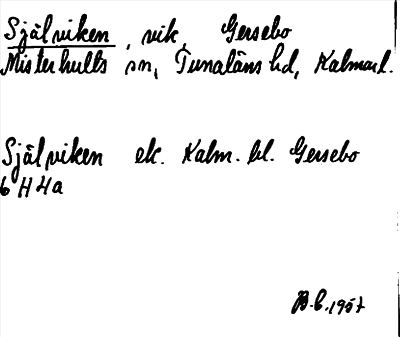 Själviken, vik, Gersebo
Misterhults sn, Tunaläns hd, Kalmar l.
Själviken ek. Kalm. bl. Gersebo
6 H 4a
B.C. 1957